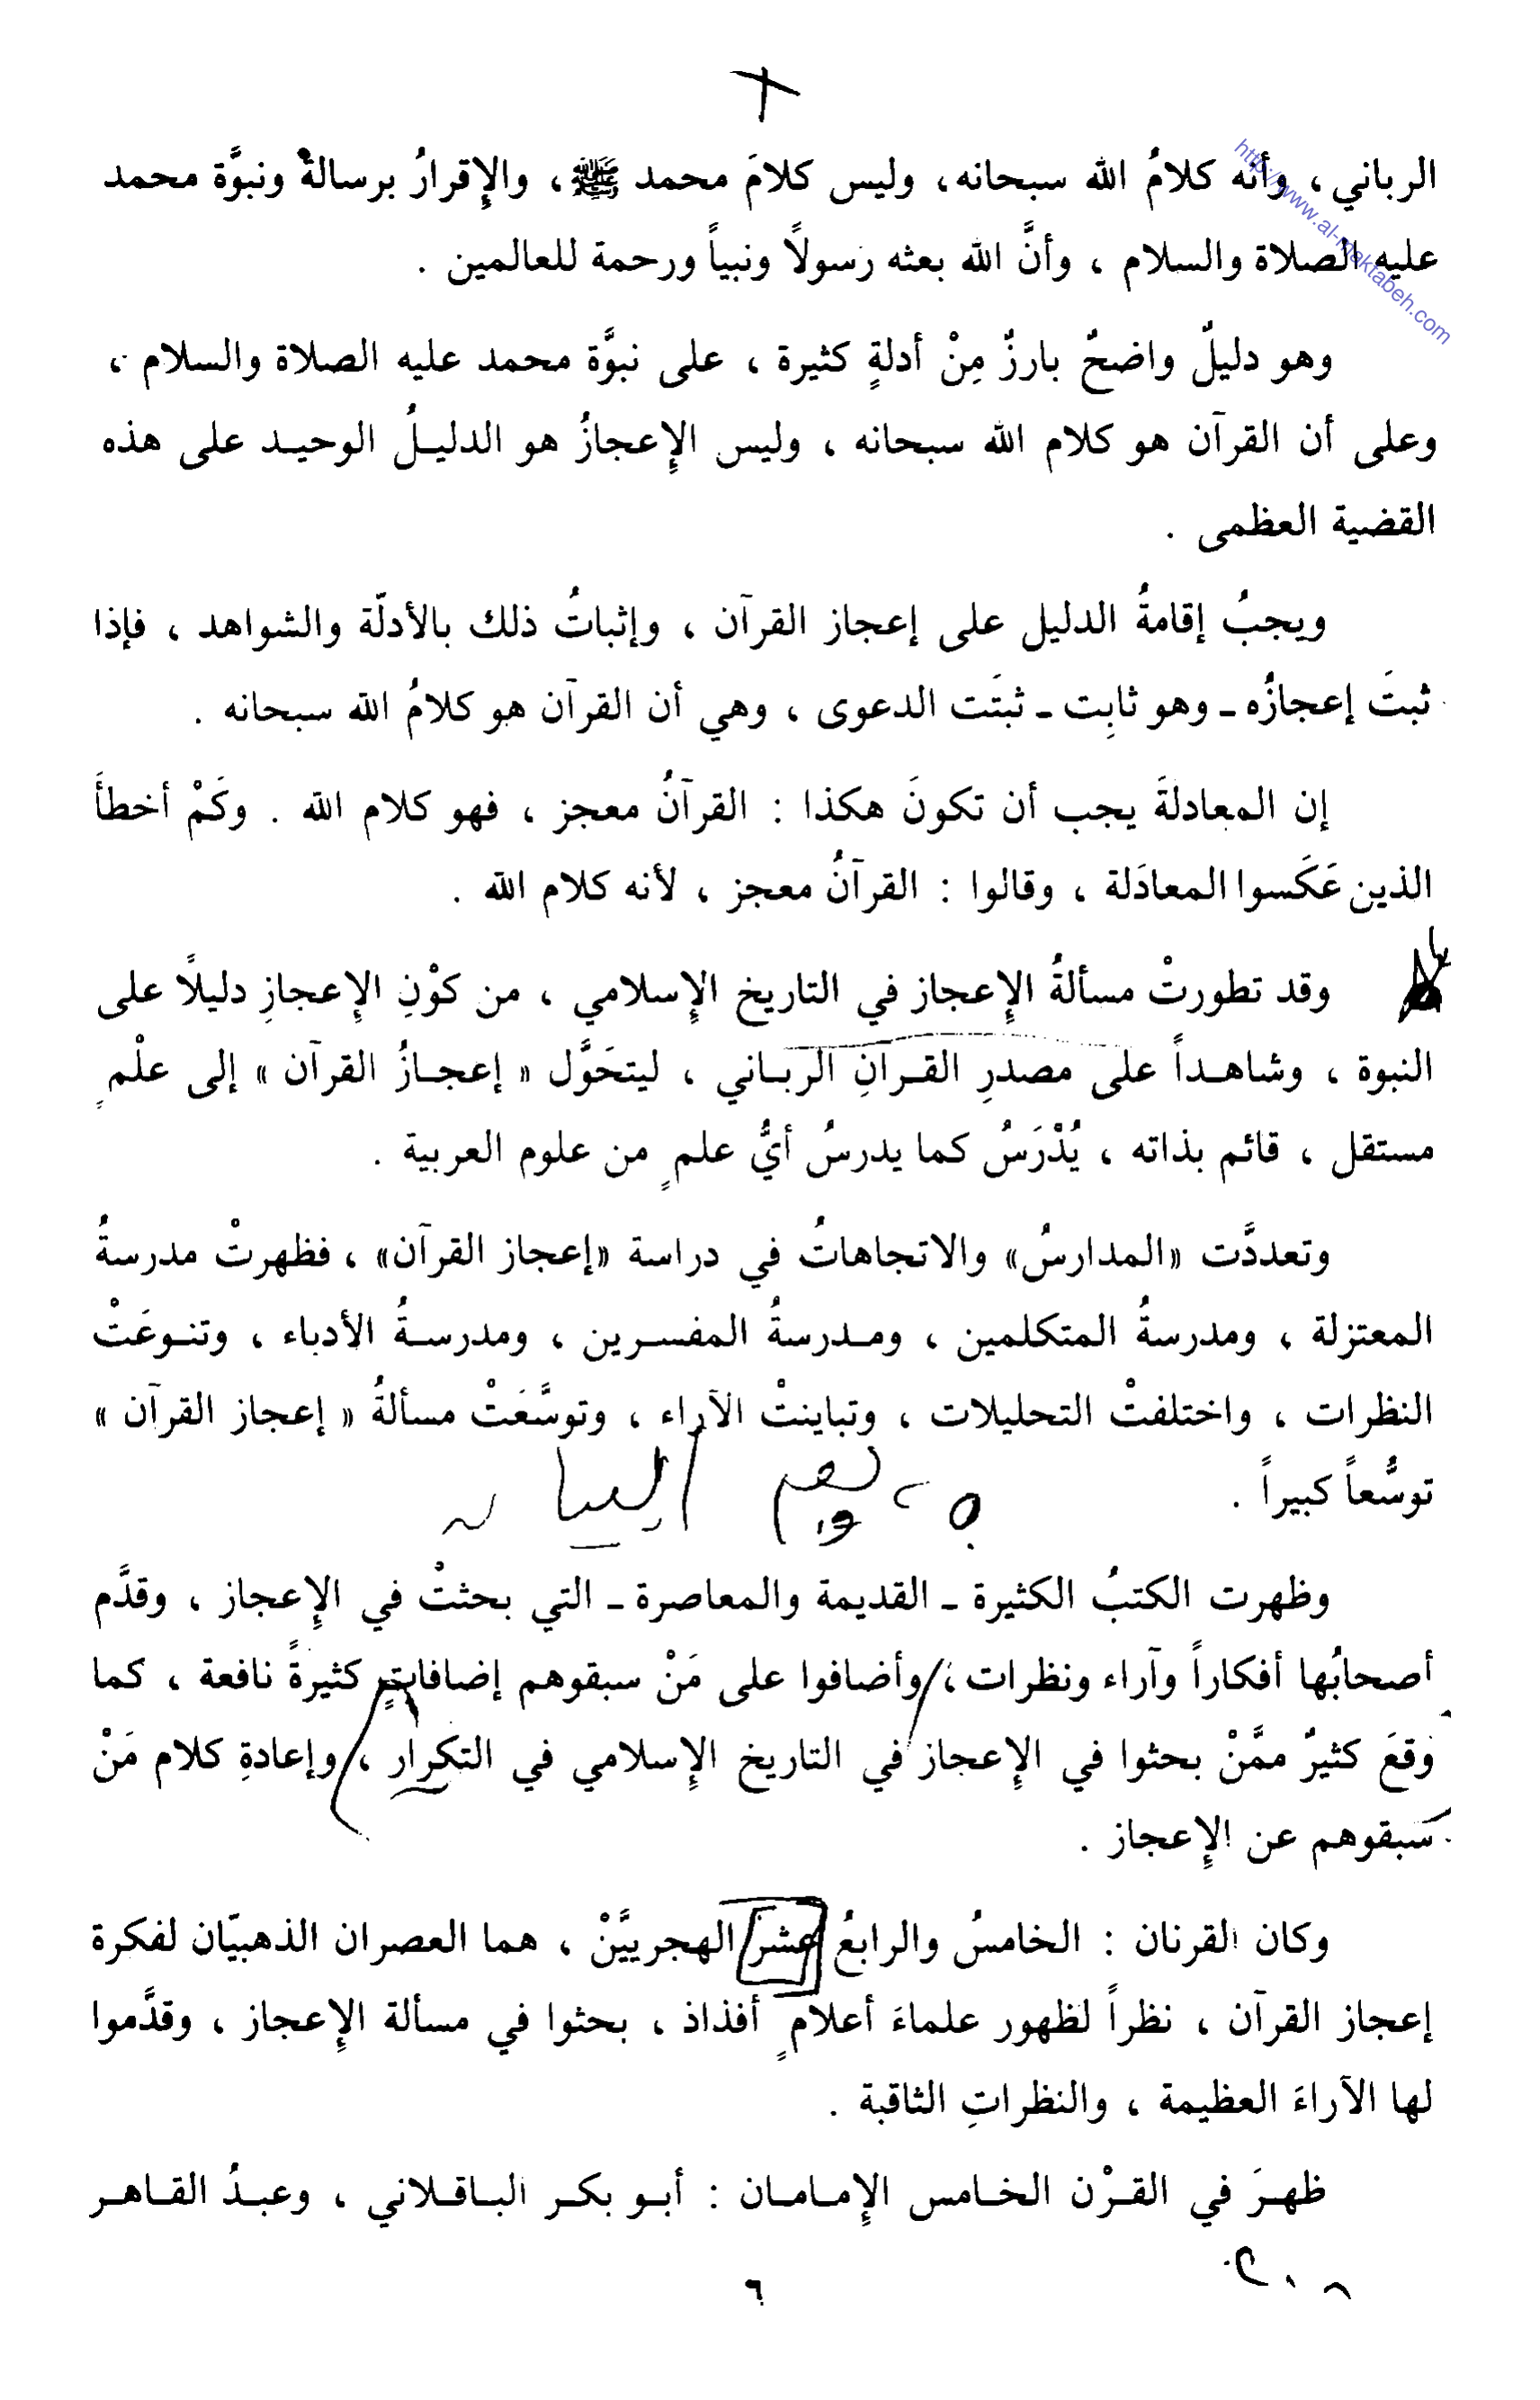 الرباني ، وأنه كلامُ الله سبحانه، وليس كلامَ محمد ﷺ ، والإِقرارُ برسالةْ ونبوَّة محمد
عليه الصلاة والسلام ، وأنَّ الله بعثه رسولاً ونبياً ورحمة للعالمين .
http://www.al-maktabeh.com
وهو دليلٌ واضحٌ بارزٌ مِنْ أدلةٍ كثيرة ، على نبوَّة محمد عليه الصلاة والسلام ،
وعلى أن القرآن هو كلام الله سبحانه ، وليس الإِعجازُ هو الدليـلُ الوحيـد على هذه
القضية العظمى .
ويجبُ إقامةُ الدليل على إعجاز القرآن ، وإثباتُ ذلك بالأدلّة والشواهد ، فإذا
ثبتَ إعجازُه ـ وهو ثابِت ـ ثبتَت الدعوى ، وهي أن القرآن هو كلامُ الله سبحانه .
إن المعادلةَ يجب أن تكونَ هكذا : القرآنُ معجز ، فهو كلام الله . وكَمْ أخطأَ
الذين عَكَسوا المعادَلة ، وقالوا : القرآنُ معجز ، لأنه كلام الله .
وقد تطورتْ مسألةُ الإِعجاز في التاريخ الإِسلامي ، من كوْنِ الإِعجازِ دليلاً على
النبوة ، وشاهـداً على مصدرِ القـرآنِ الربـاني ، ليتحَوَّل « إعجـازُ القرآن » إلى علْمٍ
مستقل ، قائم بذاته ، يُدْرَسُ كما يدرسُ أيُّ علمٍ من علوم العربية .
وتعددَّت «المدارسُ» والاتجاهاتُ في دراسة «إعجاز القرآن» ، فظهرتْ مدرسةُ
المعتزلة ، ومدرسةُ المتكلمين ، ومـدرسةُ المفسـرين ، ومدرسـةُ الأدباء ، وتنـوعَتْ
النظرات ، واختلفتْ التحليلات ، وتباينتْ الآراء ، وتوسَّعَتْ مسألةُ « إعجاز القرآن »
توسُّعاً كبيراً .
وظهرت الكتبُ الكثيرة ـ القديمة والمعاصرة ـ التي بحثتْ في الإِعجاز ، وقدَّم
أصحابُها أفكاراً وآراء ونظرات ، وأضافوا على مَنْ سبقوهم إضافاتٍ كثيرةً نافعة ، كما
وقعَ كثيرٌ ممَّنْ بحثوا في الإِعجاز في التاريخ الإِسلامي في التكرار ، وإعادةِ كلام مَنْ
سبقوهم عن الإِعجاز .
وكان القرنان : الخامسُ والرابعُ عشر الهجرييَّنْ ، هما العصران الذهبيّان لفكرة
إعجاز القرآن ، نظراً لظهور علماءَ أعلامٍ أفذاذ ، بحثوا في مسألة الإِعجاز ، وقدَّموا
لها الآراءَ العظيمة ، والنظراتِ الثاقبة .
ظهـرَ في القـرْن الخـامس الإِمـامـان : أبـو بكـر البـاقـلاني ، وعبـدُ القـاهـر
٦